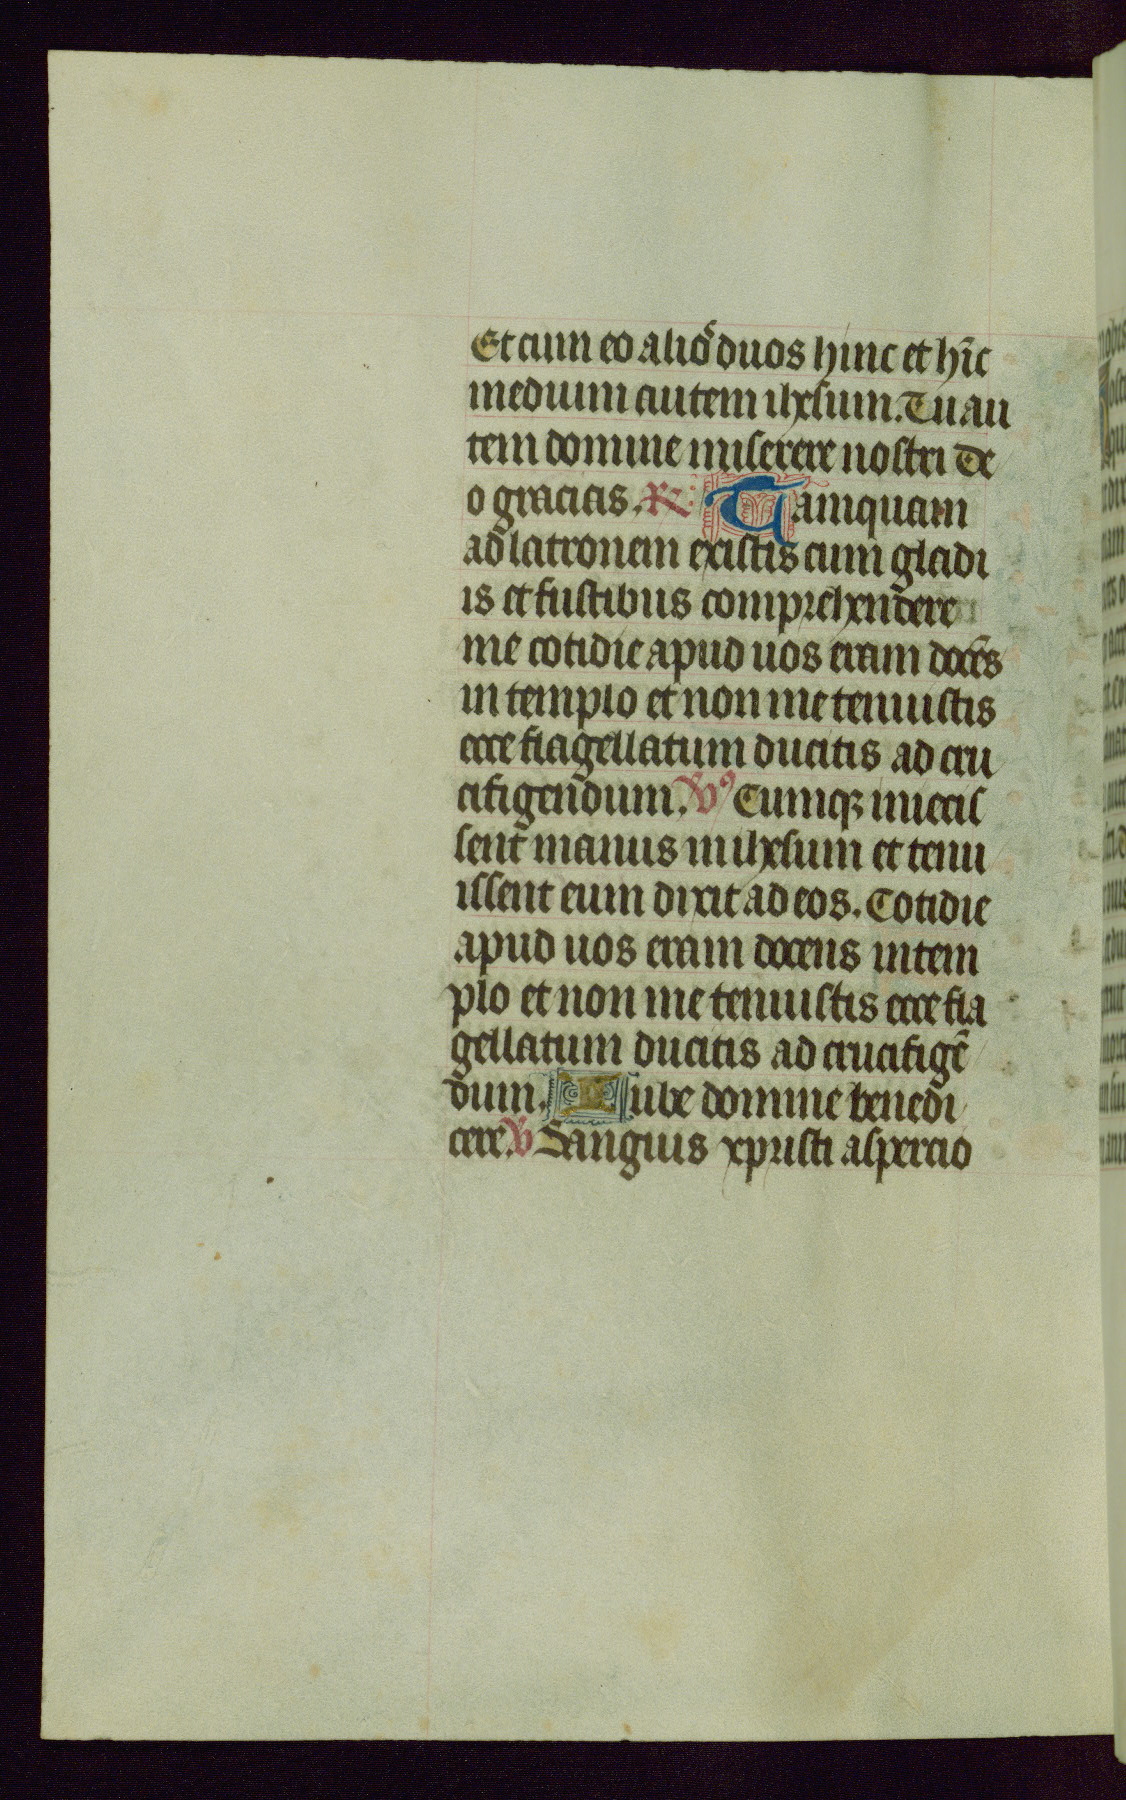 Et cum eo alios duos hinc et hīc
medium autem ihesum. Tu au
tem domine miserere nostri De
o gracias. R Tamquam
ad latronem existis cum gladi
is et fustibus comprehendere
me cotidie apud uos eram docēs
in templo et non me tenuistis
ecce flagellatum ducitis ad cru
cifigendum. V Cumqꝫ iniecis
sent manus in ihesum et tenu
issent eum dixit ad eos. Cotidie
apud uos eram docens in tem
plo et non me tenuistis ecce fla
gellatum ducitis ad crucifigē
dum. Iube domine benedi
cere. V Sanguis xpristi aspercio